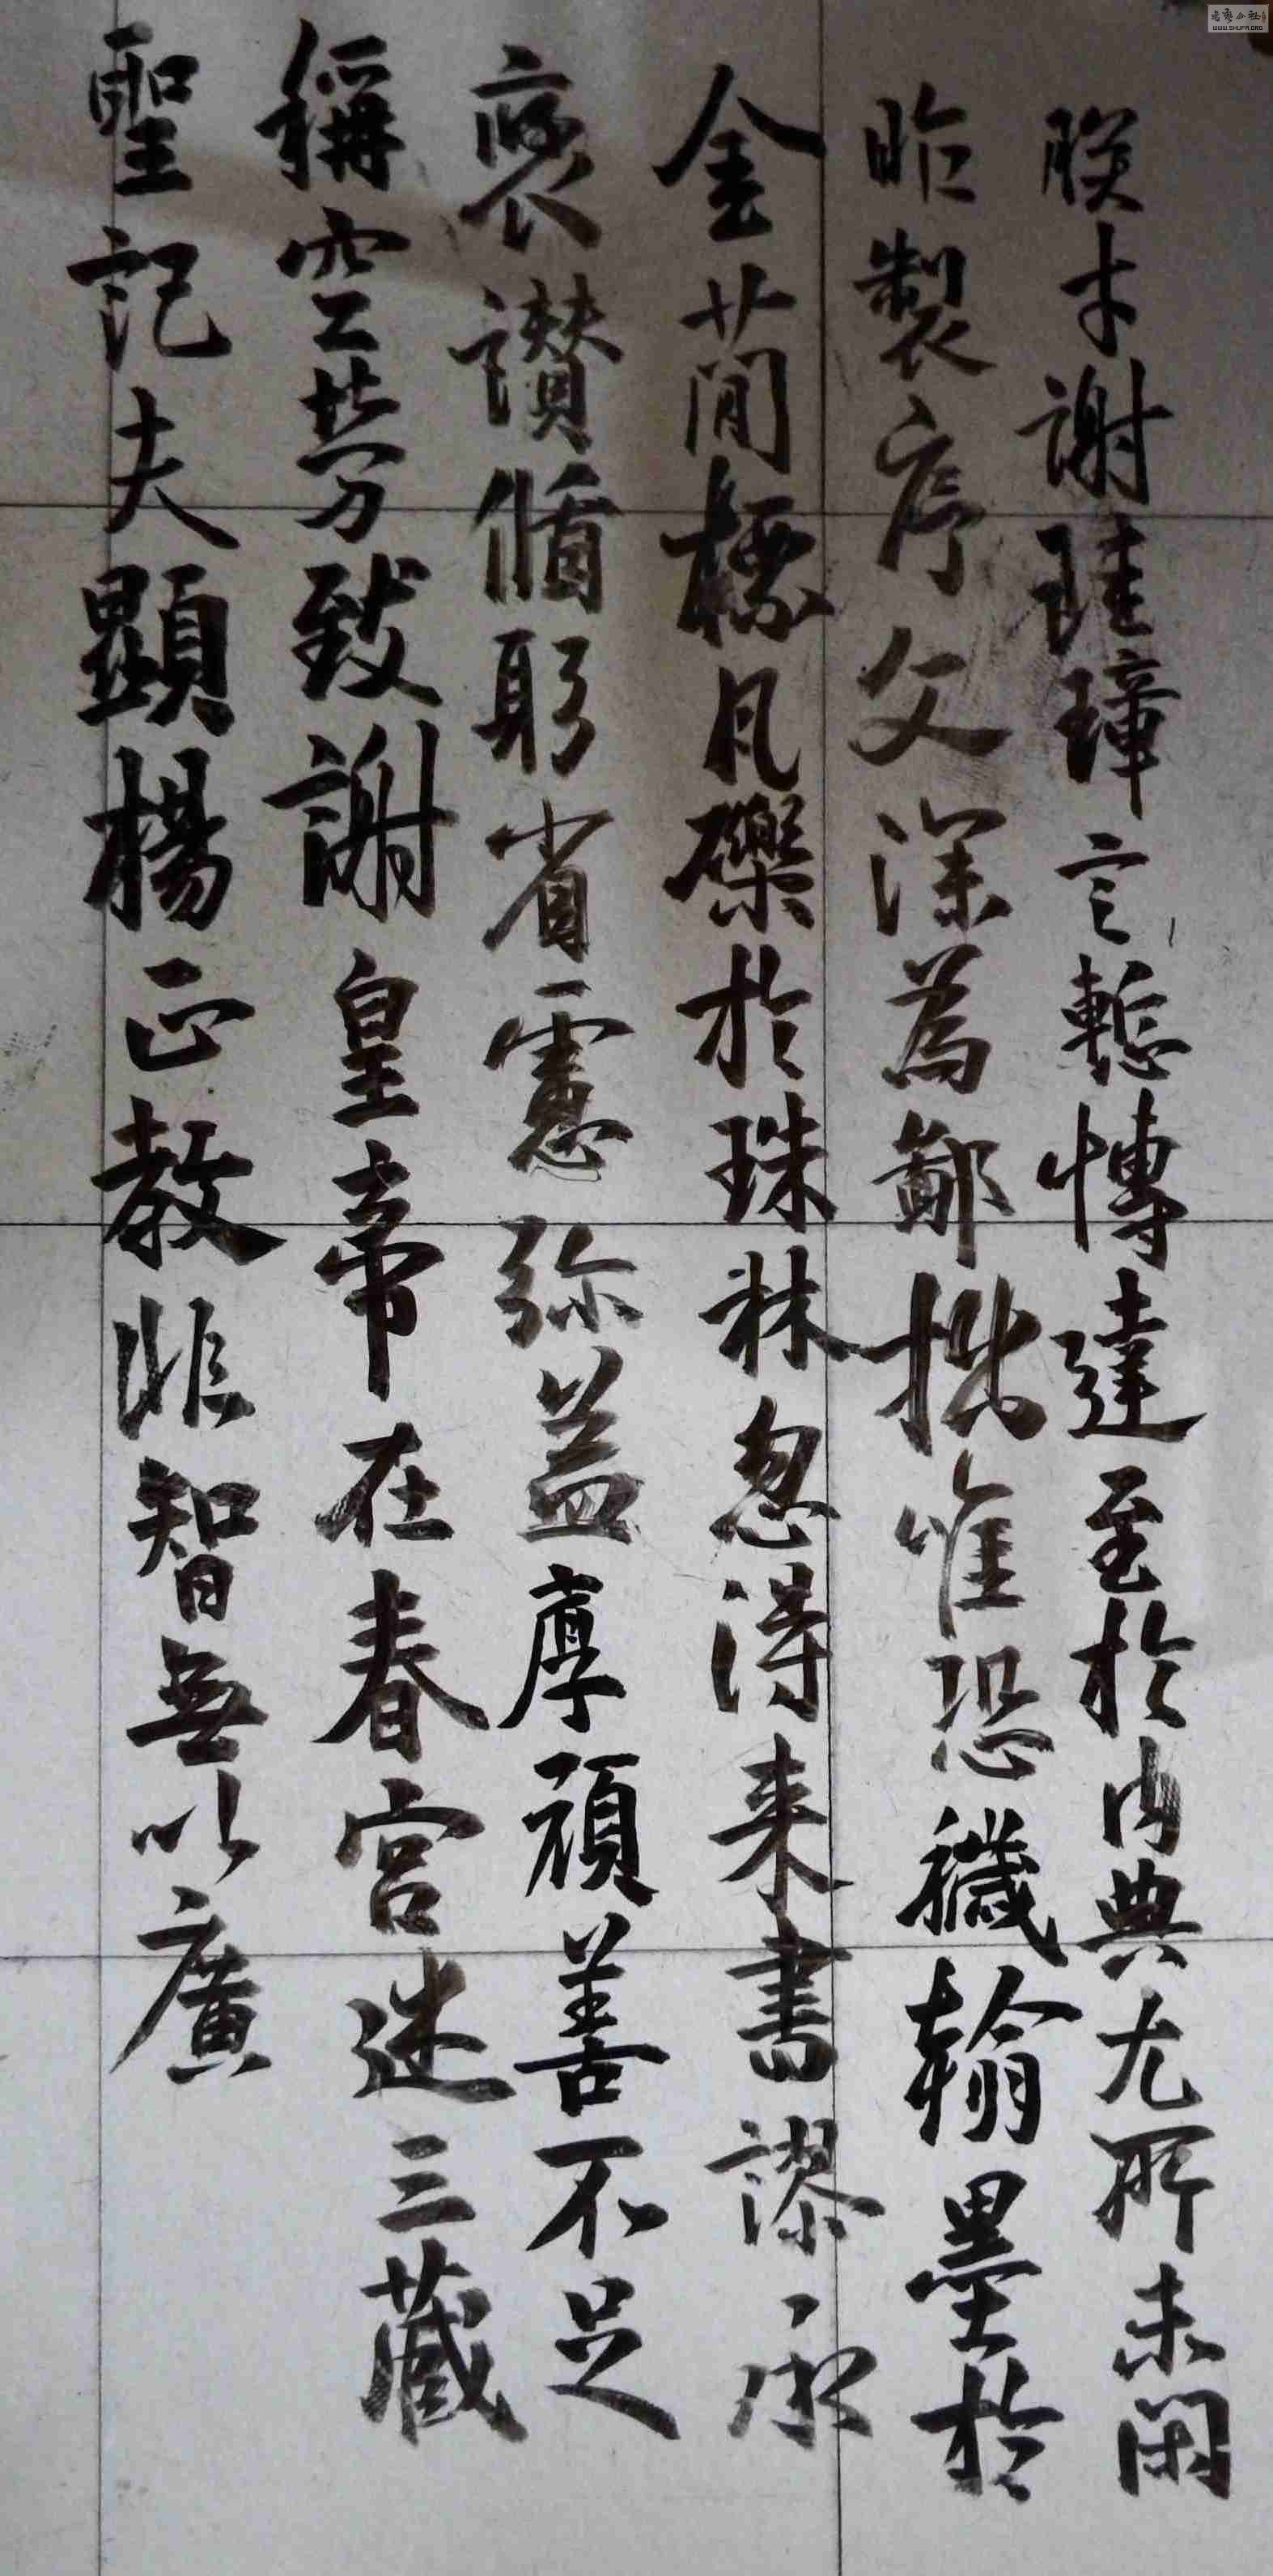 朕才謝珪璋言慙博達至於內典尤所未閑
昨製序文深為鄙拙唯恐穢翰墨於
金蕳標凡礫於珠林忽得来書謬承
襃讃脩躬省慮弥益厚顔善不足
稱空勞致謝皇帝在春宮述三藏
聖記夫顯楊正教非智無以廣
WWW.SHUFA.ORG